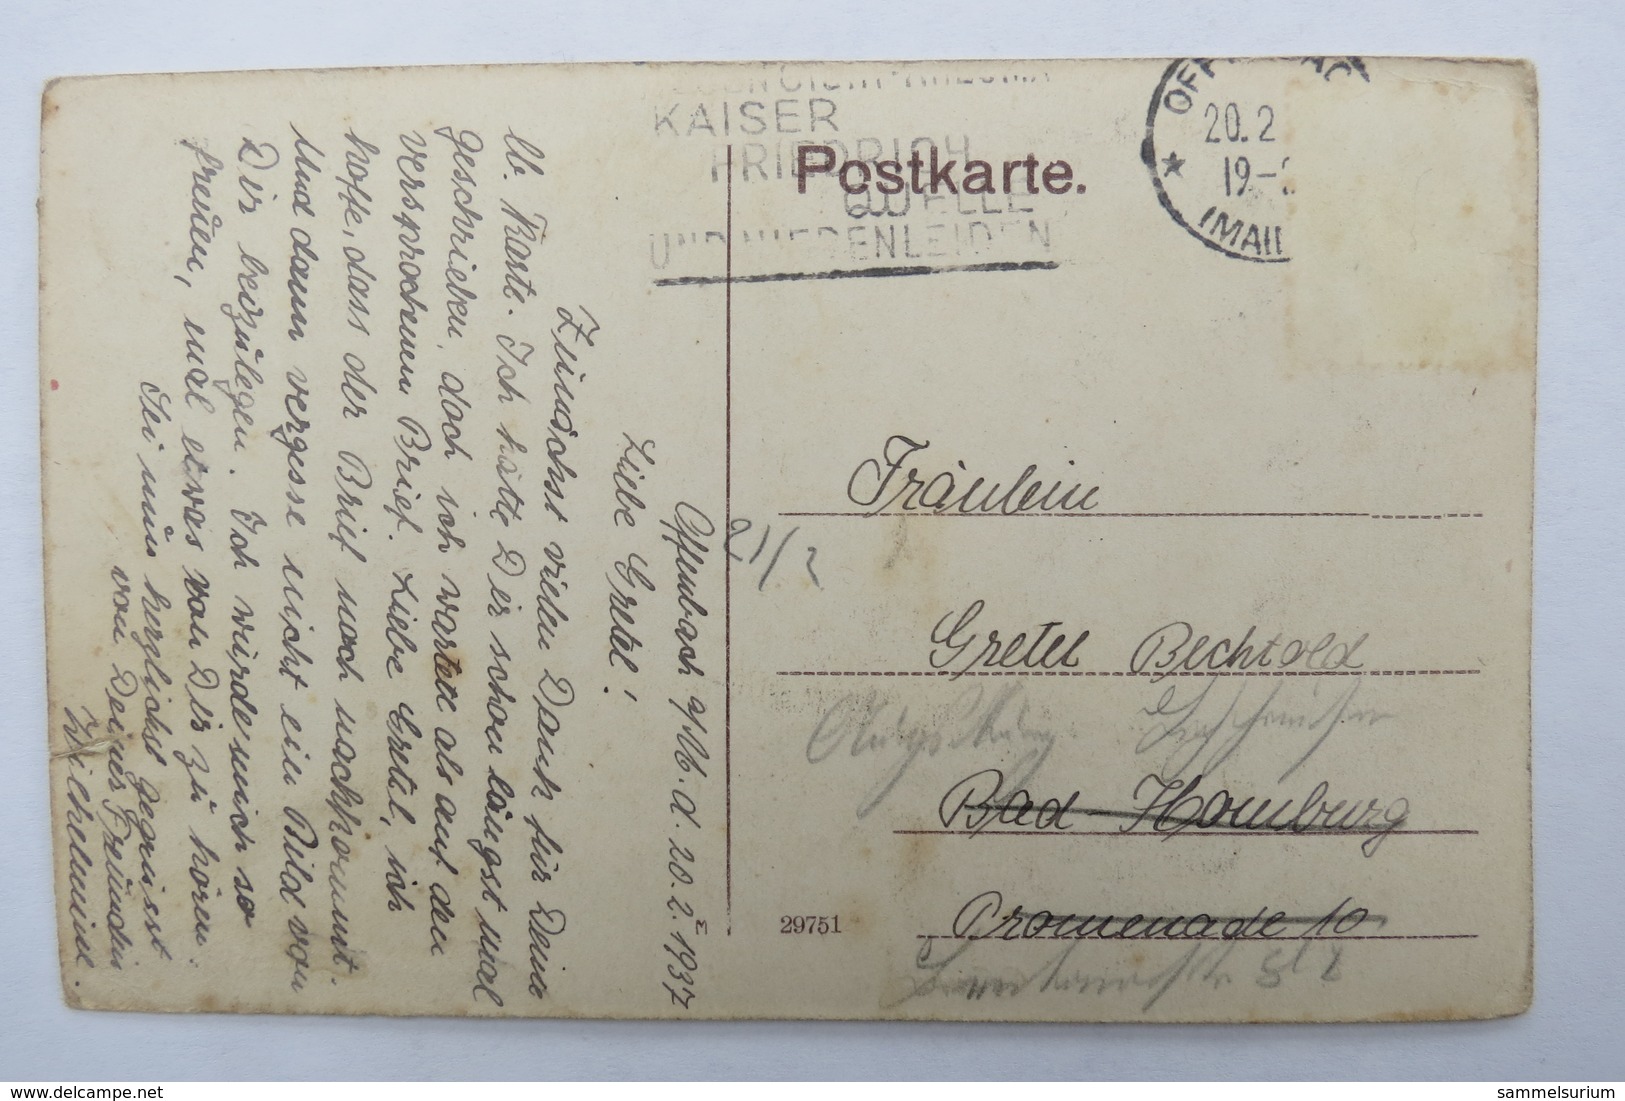 KAISER
FRIEDRICH
QUELLE
UND NIERENLEIDEN
Postkarte.
20.2
19-2
(MAIN
Offenbach a/M. d. 20. 2. 1937
Liebe Gretel!
Zunächst vielen Dank für Deine
lb. Karte. Ich hätte Dir schon längst mal
geschrieben, doch ich wartete als auf den
versprochenen Brief. Liebe Gretel, ich
hoffe, dass der Brief noch nachkommt.
Und dann vergesse nicht ein Bild von
Dir beizulegen. Ich würde mich so
freuen, mal etwas von Dir zu hören.
Sei nun herzlichst gegrüsst
von Deiner Freundin
Wilhelmine.
21/2
Fräulein
Gretel Bechtold
Bad-Homburg
Promenade 10
29751
delcampe.net
sammelsurium